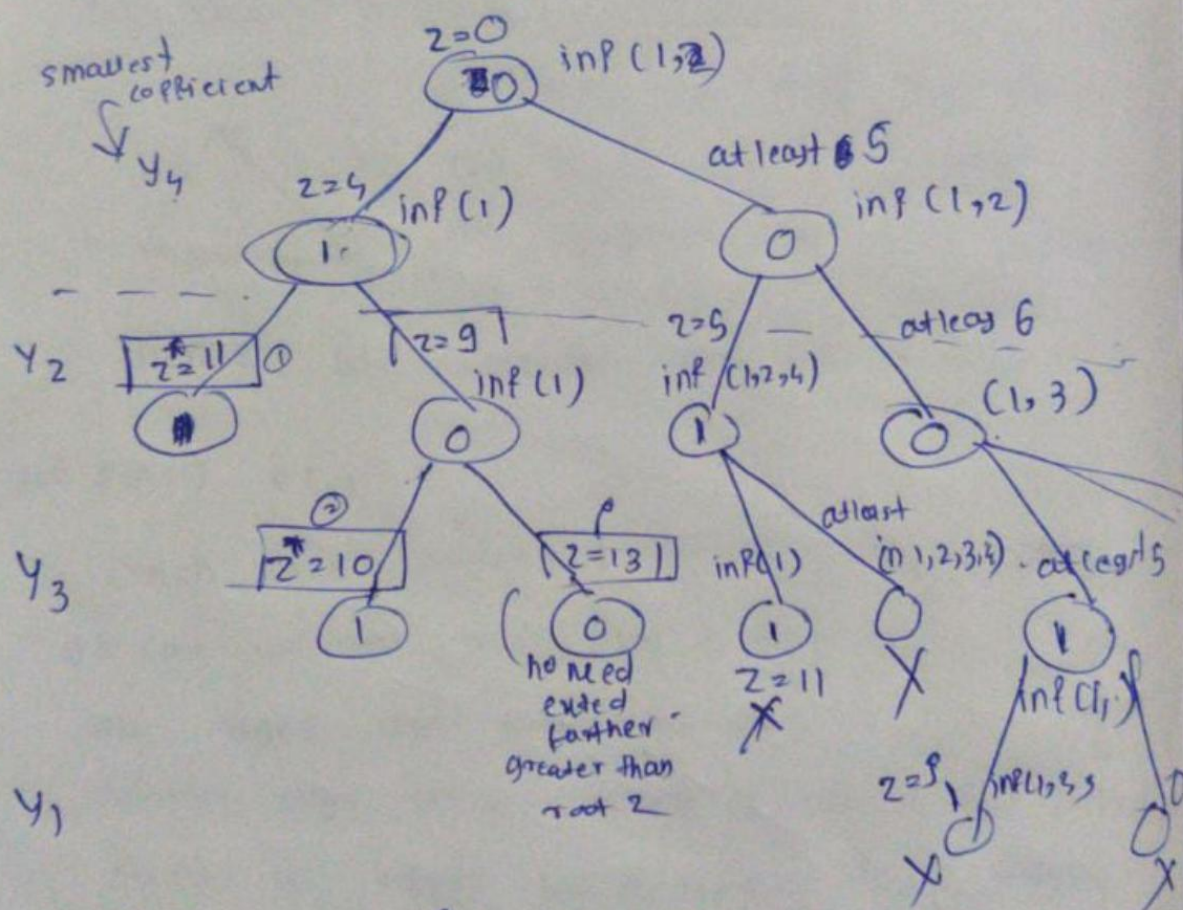 z=0
inf (1,2)
0
smallest
cofficient
y4
z=4
inf (1)
1
atleast 5
inf (1,2)
0
y2
z*=11
①
z=9
inf (1)
0
z=5
inf (1,2,4)
1
atleas 6
(1,3)
0
y3
②
z*=10
1
z=13
0
no need
exted
farther
greater than
root 2
inf(1)
1
z=11
X
atleast
(n 1,2,3,4)
X
1
inf(1,
y1
X
0
X